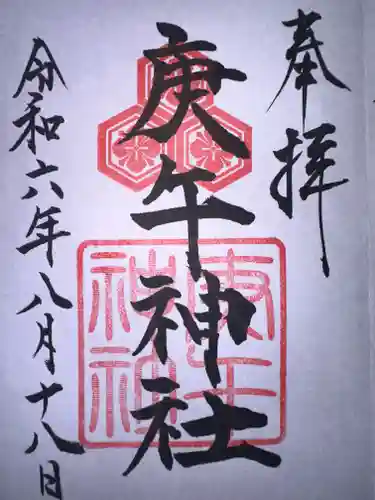 奉拝
庚午神社
令和六年八月十八日
庚午
神社